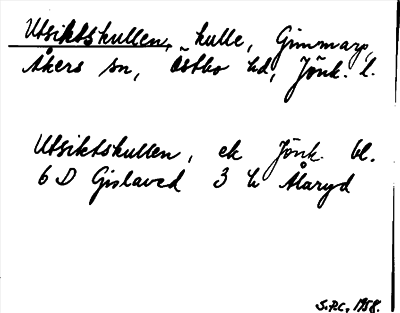 Utsiktskullen, kulle, Gimmarp,
Åkers sn, Östbo hd, Jönk. l.
Utsiktskullen, ek Jönk. bl.
6 D Gislaved 3 h Ålaryd
S.P.C., 1958.